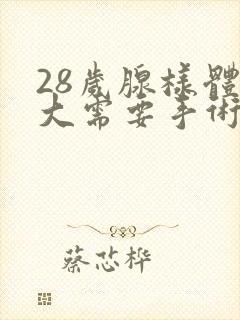 28歲腺樣體
大需要手術
蔡芯樺